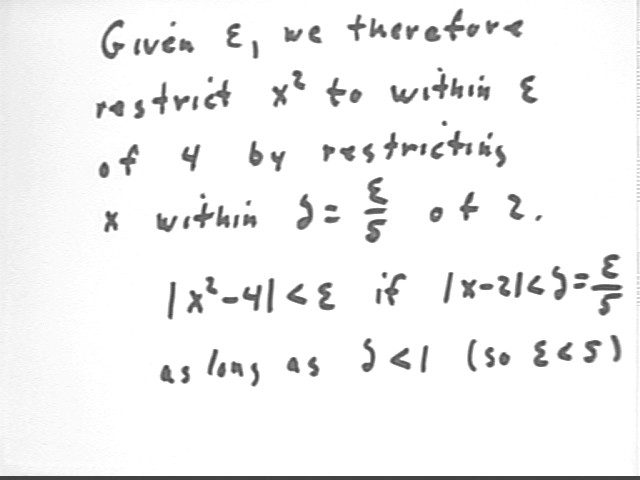 Given ε, we therefore
restrict x² to within ε
of 4 by restricting
x within δ = ε/5 of 2.
|x²-4| < ε if |x-2| < δ = ε/5
as long as δ < 1 (so ε < 5)